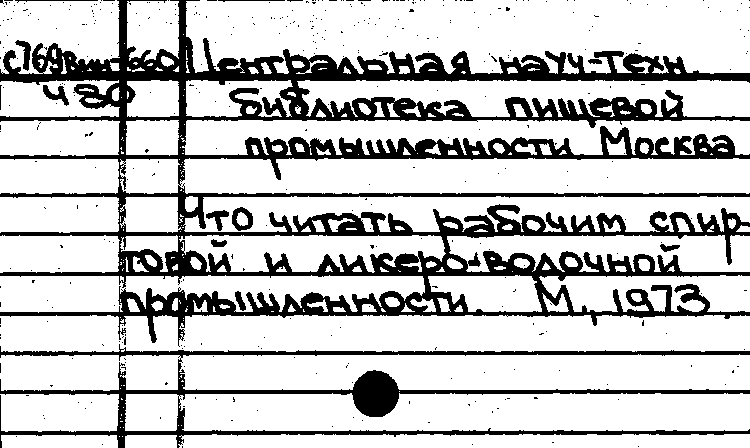 Центральная науч.-техн.
библиотека пищевой
промышленности. Москва
Что читать рабочим спир-
товой и ликеро-водочной
промышленности. М., 1973.
480